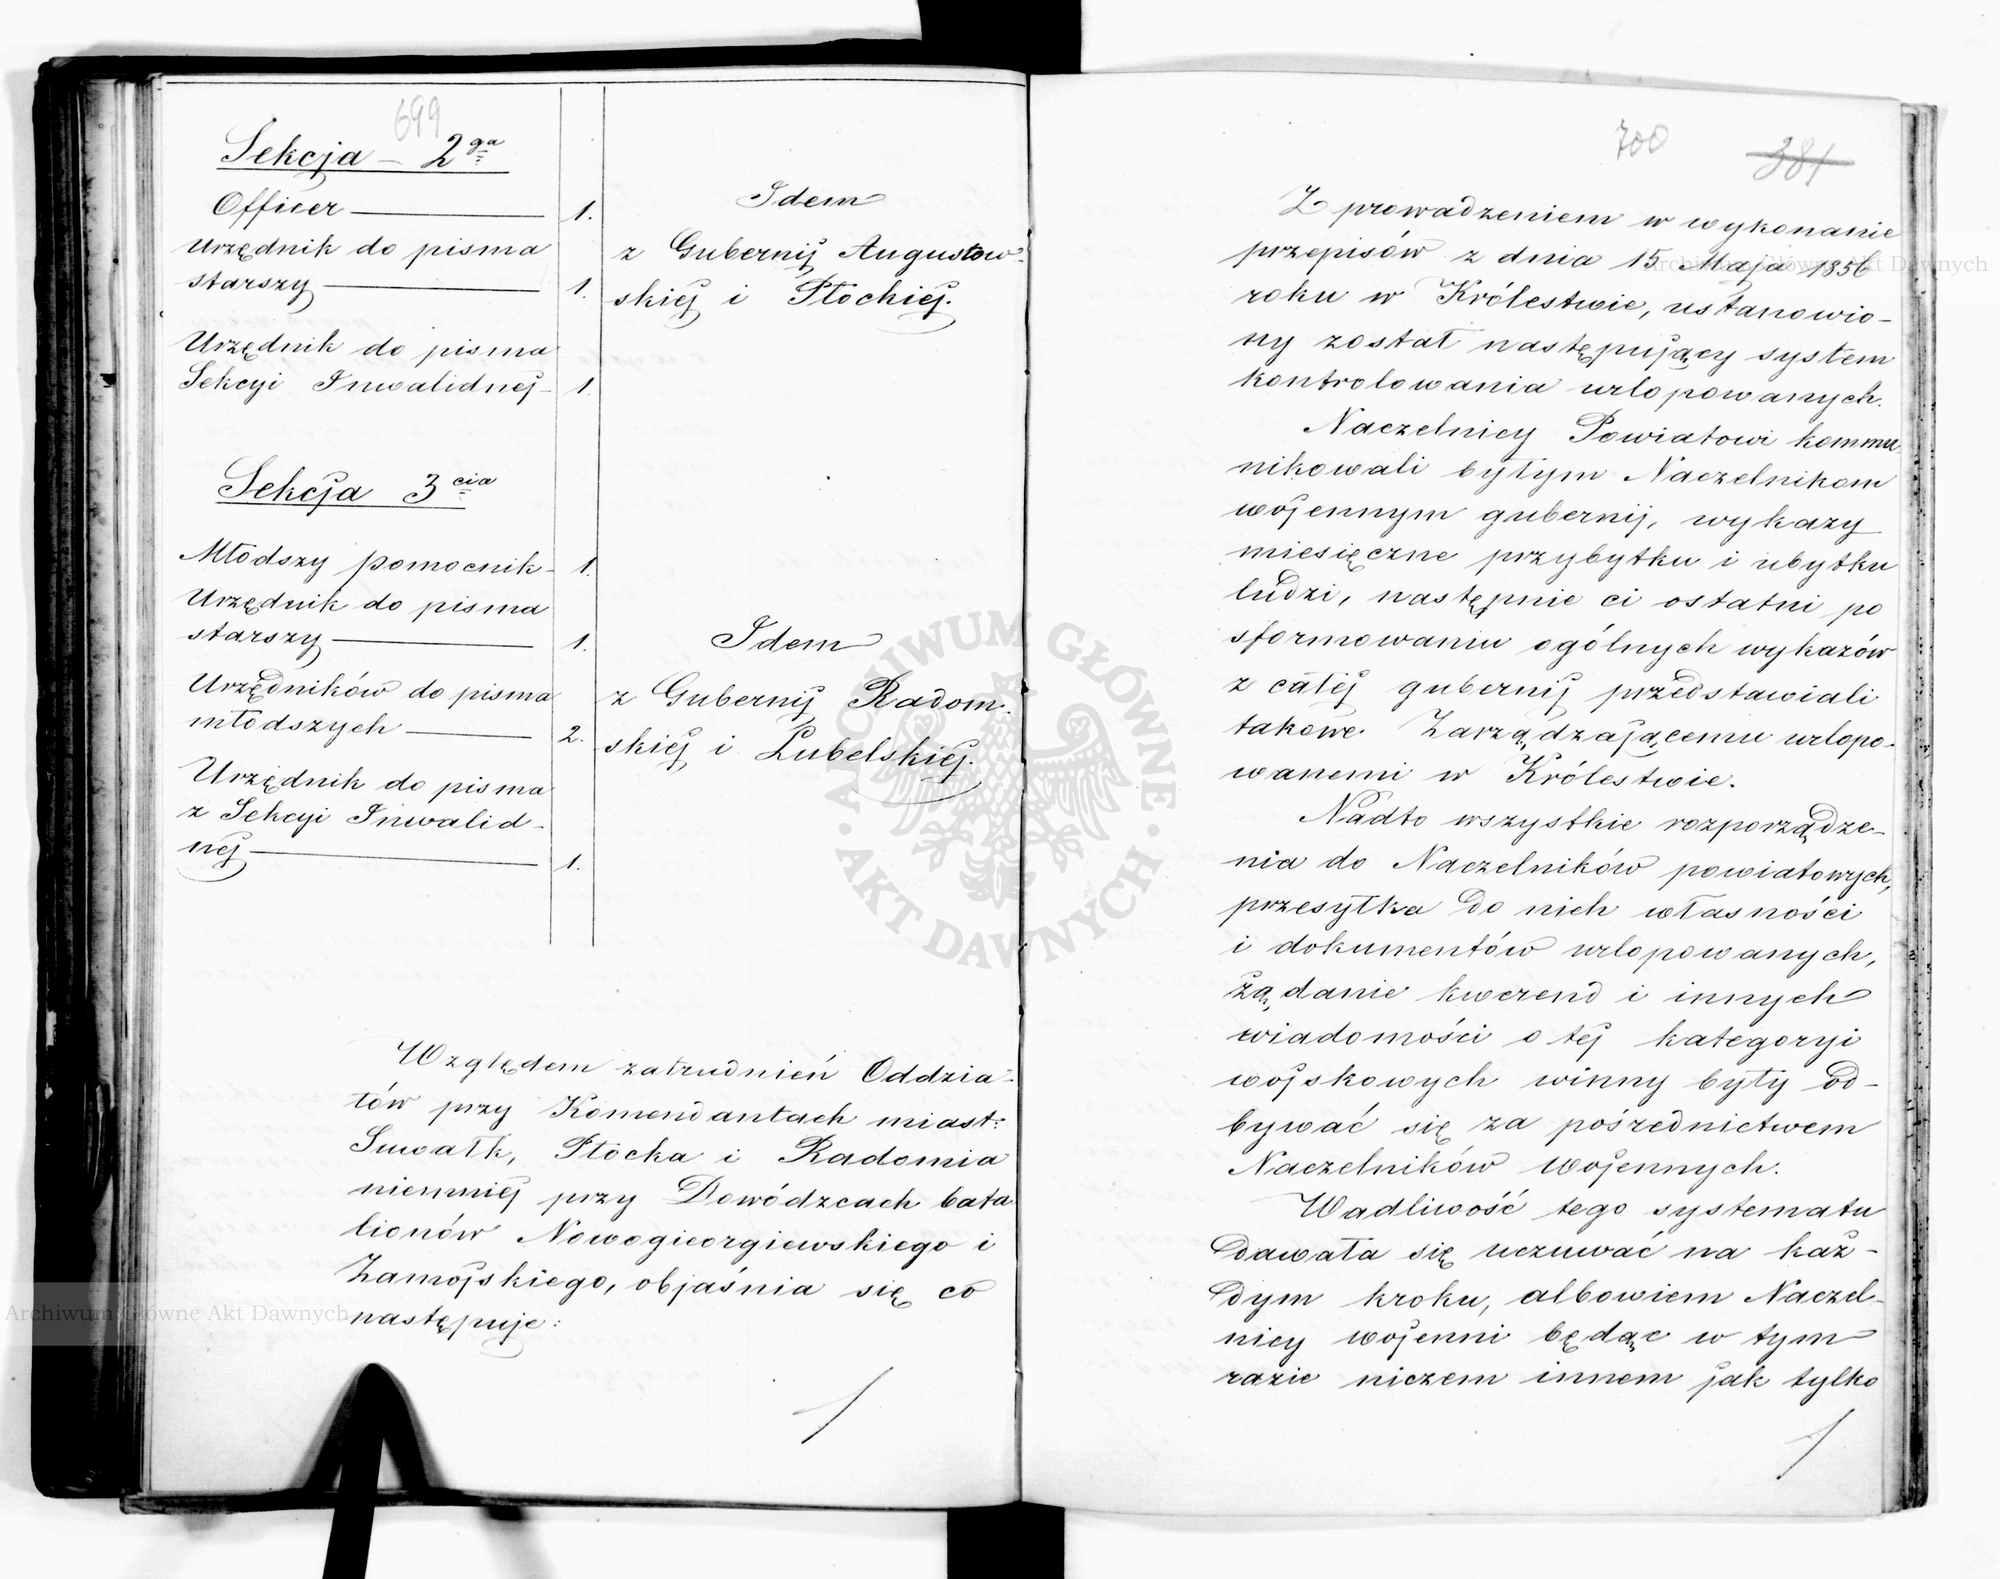 699
Sekcja – 2ga
Officer 1.
Urzędnik do pisma
starszy 1.
Urzędnik do pisma
Sekcyi Inwalidnej 1.
Idem
z Gubernij Augustow-
skiej i Płockiej.
Sekcja 3cia
Młodszy pomocnik 1.
Urzędnik do pisma
starszy 1.
Urzędników do pisma
młodszych 2.
Urzędnik do pisma
z Sekcyi Inwalid-
nej 1.
Idem
z Gubernij Radom-
skiej i Lubelskiej.
Względem zatrudnień Oddzia-
łów przy Komendantach miast:
Suwałk, Płocka i Radomia
niemniej przy Dowódzcach bata-
lionów Nowogieorgiewskiego i
Zamojskiego, objaśnia się co
następuje:
700 381
Z prowadzeniem w wykonanie
przepisów z dnia 15 Maja 1856
roku w Królestwie, ustanowio-
ny został następujący system
kontrolowania urlopowanych.
Naczelnicy Powiatowi kommu-
nikowali byłym Naczelnikom
wojennym gubernij, wykazy
miesięczne przybytku i ubytku
ludzi, następnie ci ostatni po
sformowaniu ogólnych wykazów
z całej gubernij przedstawiali
takowe Zarządzającemu urlopo-
wanemi w Królestwie.
Nadto wszystkie rozporządze-
nia do Naczelników powiatowych,
przesyłka do nich własności
i dokumentów urlopowanych,
żądanie kwerend i innych
wiadomości o tej kategoryi
wojskowych winny były od-
bywać się za pośrednictwem
Naczelników wojennych.
Wadliwość tego systematu
dawała się uczuwać na każ-
dym kroku, albowiem Naczel-
nicy wojenni będąc w tym
razie niczem innem jak tylko
ARCHIWUM GŁÓWNE AKT DAWNYCH
Archiwum Główne Akt Dawnych
Archiwum Główne Akt Dawnych